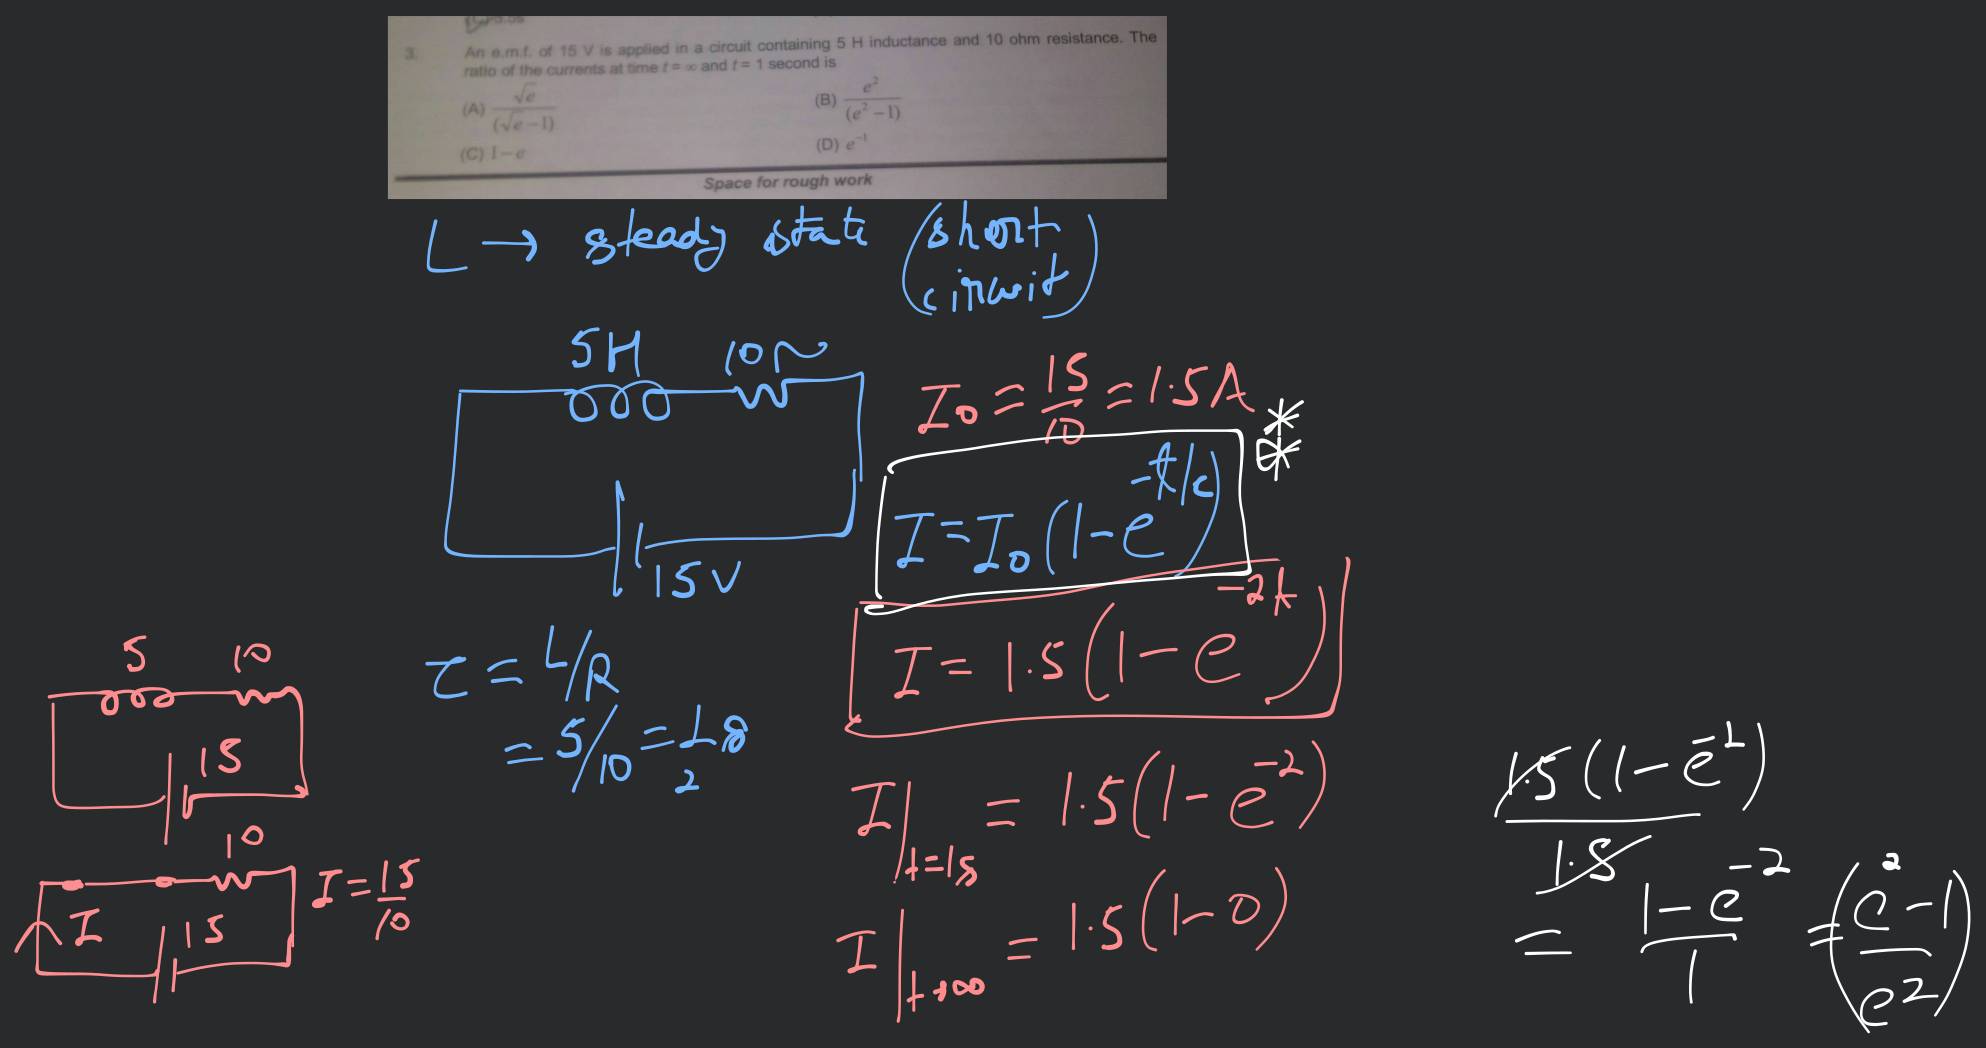 3. An e.m.f. of 15 V is applied in a circuit containing 5 H inductance and 10 ohm resistance. The
ratio of the currents at time t = ∞ and t = 1 second is
(A) √e / (√e − 1)
(B) e² / (e² − 1)
(C) 1 − e
(D) e⁻¹
Space for rough work
L → steady state (short
circuit)
5H 10Ω
15 V
I₀ = 15/10 = 1.5A
I = I₀(1 − e^(-t/τ))
I = 1.5(1 − e^(-2t))
τ = L/R
= 5/10 = 1/2 s
I|t=1s = 1.5(1 − e⁻²)
I|t→∞ = 1.5(1 − 0)
5 10
15
10
I 15
I = 15/10
1.5(1 − e⁻²) / 1.5
= (1 − e⁻²) / 1 = (e² − 1 / e²)